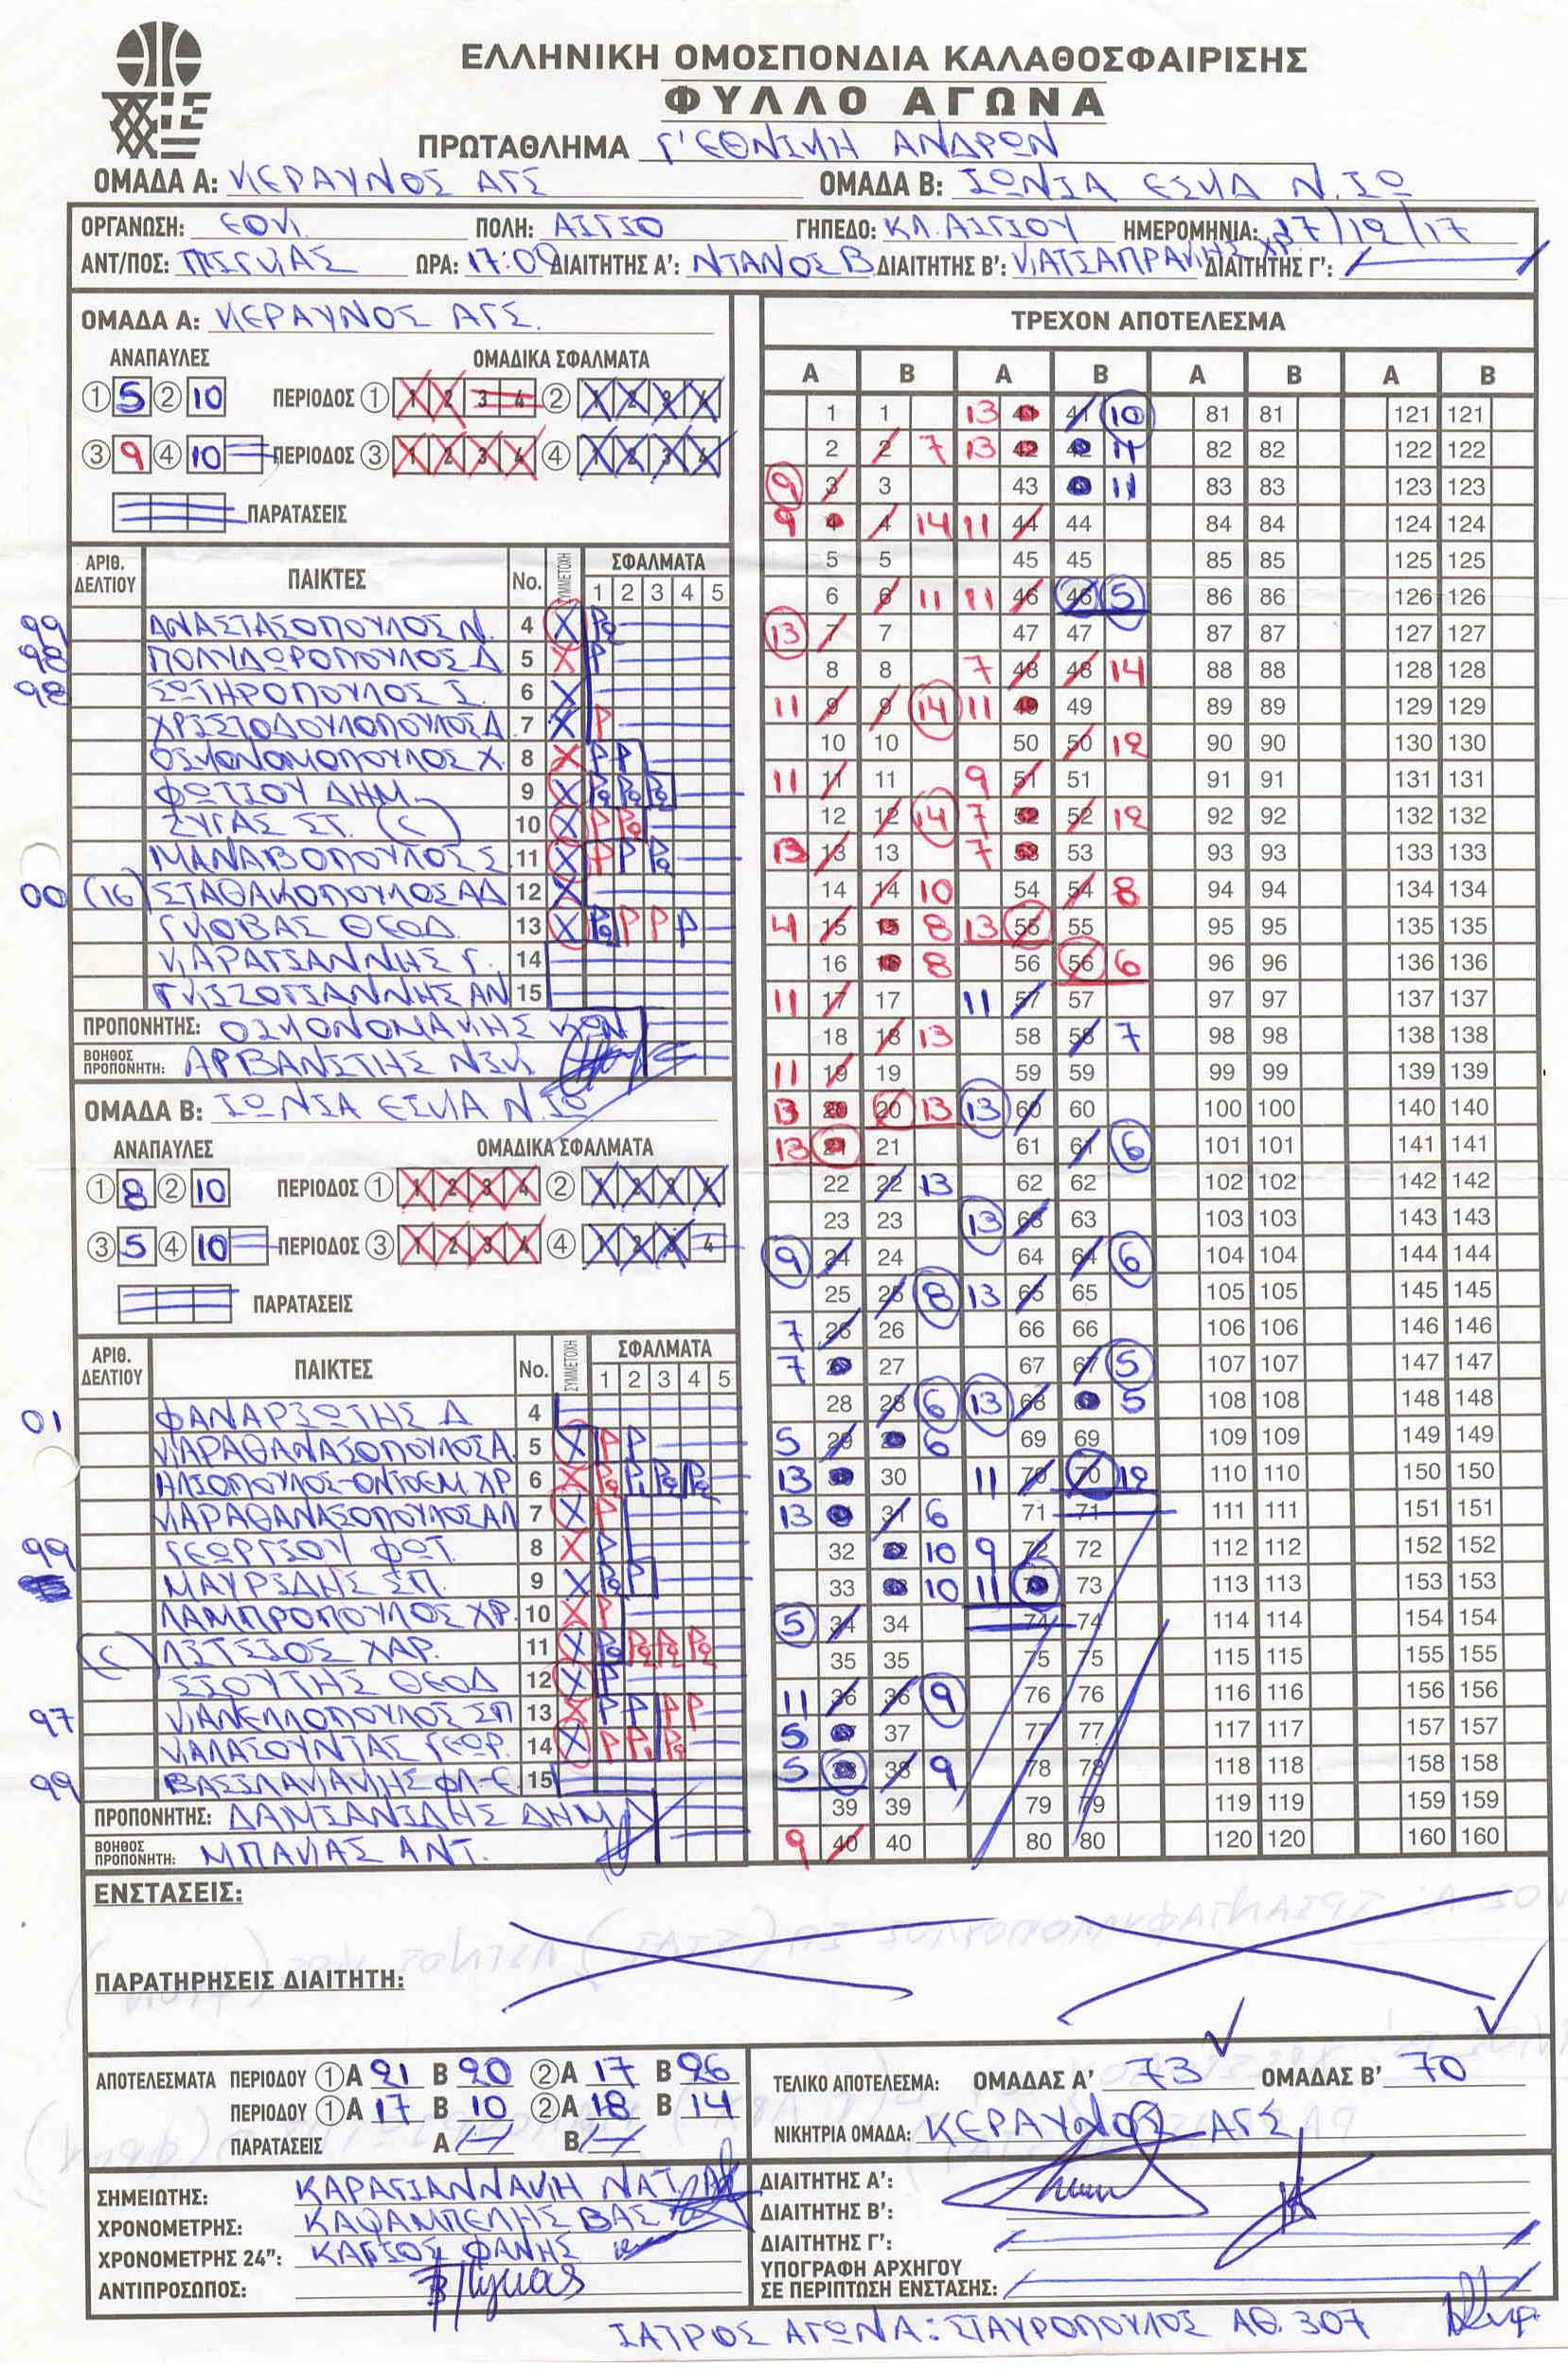 ΕΛΛΗΝΙΚΗ ΟΜΟΣΠΟΝΔΙΑ ΚΑΛΑΘΟΣΦΑΙΡΙΣΗΣ
ΦΥΛΛΟ ΑΓΩΝΑ
ΠΡΩΤΑΘΛΗΜΑ Γ' ΕΘΝΙΚΗ ΑΝΔΡΩΝ
ΟΜΑΔΑ Α: ΚΕΡΑΥΝΟΣ ΑΓΣ ΟΜΑΔΑ Β: ΙΩΝΙΑ ΕΣΚΑ Ν.ΙΩ
ΟΡΓΑΝΩΣΗ: ΕΟΚ. ΠΟΛΗ: ΑΙΓΙΟ ΓΗΠΕΔΟ: ΚΛ. ΑΙΓΙΟΥ ΗΜΕΡΟΜΗΝΙΑ: 17/12/17
ΑΝΤ/ΠΟΣ: ΠΙΓΚΑΣ ΩΡΑ: 17:00 ΔΙΑΙΤΗΤΗΣ Α': ΝΤΑΝΟΣ Β. ΔΙΑΙΤΗΤΗΣ Β': ΔΙΑΙΤΗΤΗΣ Γ':
ΟΜΑΔΑ Α: ΚΕΡΑΥΝΟΣ ΑΓΣ.
ΑΝΑΠΑΥΛΕΣ ΟΜΑΔΙΚΑ ΣΦΑΛΜΑΤΑ
① 5 ② 10 ΠΕΡΙΟΔΟΣ ① 1 2 3 4 ② 1 2 3 4
③ 9 ④ 10 ΠΕΡΙΟΔΟΣ ③ 1 2 3 4 ④ 1 2 3 4
ΠΑΡΑΤΑΣΕΙΣ
ΑΡΙΘ. ΔΕΛΤΙΟΥ ΠΑΙΚΤΕΣ No. ΣΥΜΜΕΤΟΧΗ ΣΦΑΛΜΑΤΑ 1 2 3 4 5
99 ΑΝΑΣΤΑΣΟΠΟΥΛΟΣ Ν. 4
98 ΠΟΛΥΔΩΡΟΠΟΥΛΟΣ Δ 5
98 ΣΩΤΗΡΟΠΟΥΛΟΣ Ι. 6
ΧΡΙΣΤΟΔΟΥΛΟΠΟΥΛΟΣ Δ. 7
ΟΙΚΟΝΟΜΟΠΟΥΛΟΣ Χ. 8
ΦΩΤΙΟΥ ΔΗΜ. 9
ΖΥΓΑΣ ΣΤ. (C) 10
ΜΑΝΑΒΟΠΟΥΛΟΣ Σ. 11
00 (16) ΣΤΑΘΑΚΟΠΟΥΛΟΣ ΑΔ 12
ΓΚΟΒΑΣ ΘΕΟΔ. 13
ΚΑΡΑΓΙΑΝΝΗΣ Γ. 14
ΓΚΙΖΟΓΙΑΝΝΗΣ ΑΝ 15
ΠΡΟΠΟΝΗΤΗΣ: ΟΙΚΟΝΟΜΑΚΗΣ ΚΩΝ
ΒΟΗΘΟΣ ΠΡΟΠΟΝΗΤΗ: ΑΡΒΑΝΙΤΗΣ ΝΙΚ
ΟΜΑΔΑ Β: ΙΩΝΙΑ ΕΣΚΑ Ν.ΙΩ
ΑΝΑΠΑΥΛΕΣ ΟΜΑΔΙΚΑ ΣΦΑΛΜΑΤΑ
① 8 ② 10 ΠΕΡΙΟΔΟΣ ① 1 2 3 4 ② 1 2 3 4
③ 5 ④ 10 ΠΕΡΙΟΔΟΣ ③ 1 2 3 4 ④ 1 2 3 4
ΠΑΡΑΤΑΣΕΙΣ
ΑΡΙΘ. ΔΕΛΤΙΟΥ ΠΑΙΚΤΕΣ No. ΣΥΜΜΕΤΟΧΗ ΣΦΑΛΜΑΤΑ 1 2 3 4 5
01 ΦΑΝΑΡΙΩΤΗΣ Δ 4
ΚΑΡΑΘΑΝΑΣΟΠΟΥΛΟΣ Α. 5
ΗΛΙΟΠΟΥΛΟΣ-ΟΝΤΟΕΜ ΧΡ 6
ΚΑΡΑΘΑΝΑΣΟΠΟΥΛΟΣ ΑΛ 7
99 ΓΕΩΡΓΙΟΥ ΦΩΤ. 8
ΜΑΥΡΙΔΗΣ ΣΠ. 9
ΛΑΜΠΡΟΠΟΥΛΟΣ ΧΡ. 10
(C) ΛΙΤΣΙΟΣ ΧΑΡ. 11
ΣΙΟΥΤΗΣ ΘΕΟΔ 12
97 ΚΑΝΕΛΛΟΠΟΥΛΟΣ ΣΠ 13
ΚΑΛΑΣΟΥΝΤΑΣ ΓΕΩΡ. 14
99 15
ΠΡΟΠΟΝΗΤΗΣ: ΔΑΜΙΑΝΙΔΗΣ ΔΗΜ
ΒΟΗΘΟΣ ΠΡΟΠΟΝΗΤΗ: ΜΠΑΚΑΣ ΑΝΤ.
ΤΡΕΧΟΝ ΑΠΟΤΕΛΕΣΜΑ
Α Β Α Β Α Β Α Β
1 1 13 41 41 10 81 81 121 121
2 2 7 13 42 42 11 82 82 122 122
9 3 3 43 43 11 83 83 123 123
9 4 4 14 11 44 44 84 84 124 124
5 5 45 45 85 85 125 125
6 6 11 11 46 46 5 86 86 126 126
13 7 7 47 47 87 87 127 127
8 8 7 48 48 14 88 88 128 128
11 9 9 14 11 49 49 89 89 129 129
10 10 50 50 12 90 90 130 130
11 11 11 9 51 51 91 91 131 131
12 12 14 7 52 52 12 92 92 132 132
13 13 13 7 53 53 93 93 133 133
14 14 10 54 54 8 94 94 134 134
4 15 15 8 13 55 55 95 95 135 135
16 16 8 56 56 6 96 96 136 136
11 17 17 11 57 57 97 97 137 137
18 18 13 58 58 7 98 98 138 138
11 19 19 59 59 99 99 139 139
13 20 20 13 13 60 60 100 100 140 140
13 21 21 61 61 6 101 101 141 141
22 22 13 62 62 102 102 142 142
23 23 13 63 63 103 103 143 143
9 24 24 64 64 6 104 104 144 144
25 25 8 13 65 65 105 105 145 145
7 26 26 66 66 106 106 146 146
7 27 27 67 67 5 107 107 147 147
28 28 6 13 68 68 5 108 108 148 148
5 29 29 6 69 69 109 109 149 149
13 30 30 11 70 70 12 110 110 150 150
13 31 31 6 71 71 111 111 151 151
32 32 10 9 72 72 112 112 152 152
33 33 10 11 73 73 113 113 153 153
5 34 34 74 74 114 114 154 154
35 35 75 75 115 115 155 155
11 36 36 9 76 76 116 116 156 156
5 37 37 77 77 117 117 157 157
5 38 38 9 78 78 118 118 158 158
39 39 79 79 119 119 159 159
9 40 40 80 80 120 120 160 160
ΕΝΣΤΑΣΕΙΣ:
ΠΑΡΑΤΗΡΗΣΕΙΣ ΔΙΑΙΤΗΤΗ:
ΑΠΟΤΕΛΕΣΜΑΤΑ ΠΕΡΙΟΔΟΥ ① Α 21 Β 20 ② Α 17 Β 26
ΠΕΡΙΟΔΟΥ ① Α 17 Β 10 ② Α 18 Β 14
ΠΑΡΑΤΑΣΕΙΣ Α Β
ΤΕΛΙΚΟ ΑΠΟΤΕΛΕΣΜΑ: ΟΜΑΔΑΣ Α' 73 ΟΜΑΔΑΣ Β' 70
ΝΙΚΗΤΡΙΑ ΟΜΑΔΑ: ΚΕΡΑΥΝΟΣ ΑΓΣ
ΣΗΜΕΙΩΤΗΣ: ΚΑΡΑΓΙΑΝΝΑΚΗ
ΧΡΟΝΟΜΕΤΡΗΣ: ΚΑΨΑΜΠΕΛΗΣ ΒΑΣ
ΧΡΟΝΟΜΕΤΡΗΣ 24": ΦΑΝΗΣ
ΑΝΤΙΠΡΟΣΩΠΟΣ:
ΔΙΑΙΤΗΤΗΣ Α':
ΔΙΑΙΤΗΤΗΣ Β':
ΔΙΑΙΤΗΤΗΣ Γ':
ΥΠΟΓΡΑΦΗ ΑΡΧΗΓΟΥ
ΣΕ ΠΕΡΙΠΤΩΣΗ ΕΝΣΤΑΣΗΣ:
ΙΑΤΡΟΣ ΑΓΩΝΑ: ΣΤΑΥΡΟΠΟΥΛΟΣ ΑΘ. 307